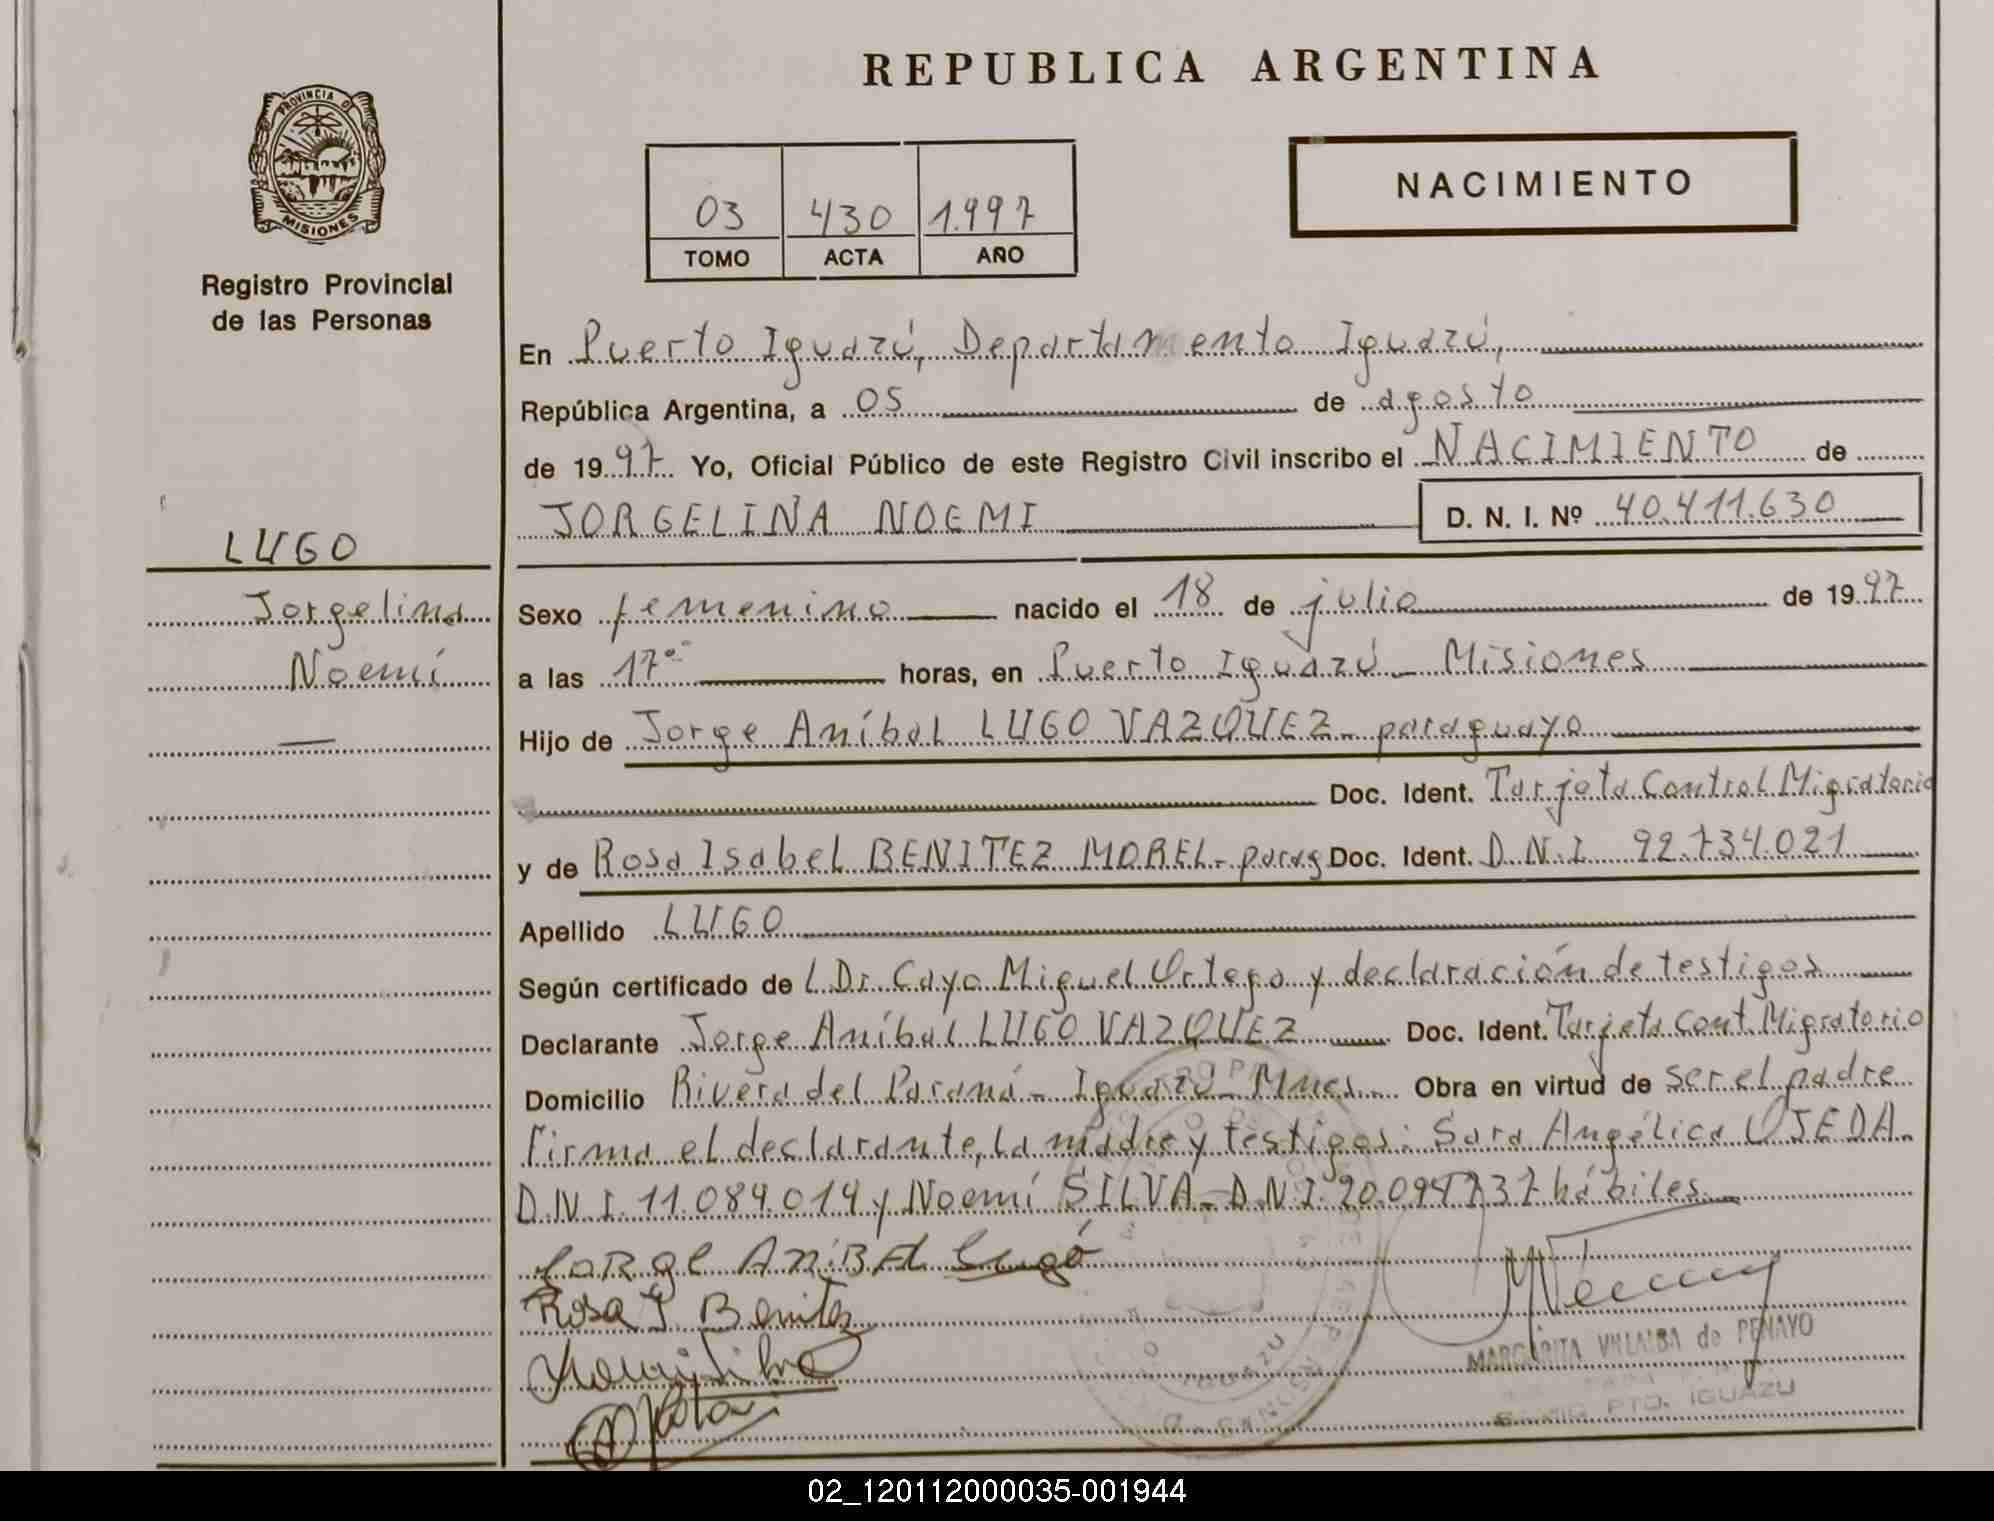 REPUBLICA ARGENTINA
PROVINCIA D
MISIONES
Registro Provincial
de las Personas
03 430 1.997
TOMO ACTA AÑO
NACIMIENTO
En Puerto Iguazú, Departamento Iguazú,
República Argentina, a 05 de agosto
de 1997 Yo, Oficial Público de este Registro Civil inscribo el NACIMIENTO de
JORGELINA NOEMI D. N. I. Nº 40.411.630
LUGO
Jorgelina
Noemí
Sexo femenino nacido el 18 de julio de 1997
a las 17°° horas, en Puerto Iguazú - Misiones
Hijo de Jorge Aníbal LUGO VAZQUEZ - paraguayo
Doc. Ident. Tarjeta Control Migratorio
y de Rosa Isabel BENITEZ MOREL - parag Doc. Ident. D.N.I. 92.734.021
Apellido LUGO
Según certificado de l Dr. Cayo Miguel Ortega y declaración de testigos
Declarante Jorge Aníbal LUGO VAZQUEZ Doc. Ident. Tarjeta Cont. Migratorio
Domicilio Rivera del Paraná - Iguazú - Mnes - Obra en virtud de ser el padre
Firma el declarante, la madre y testigos: Sara Angélica OJEDA -
D.N.I. 11.084.014 y Noemí SILVA - D.N.I. 20.094.737 hábiles
JORge AniBAl Lugo
Rosa I Benitez
Noemi Silva
MARGARITA VILLALBA de PENAYO
PTO. IGUAZU
02_120112000035-001944